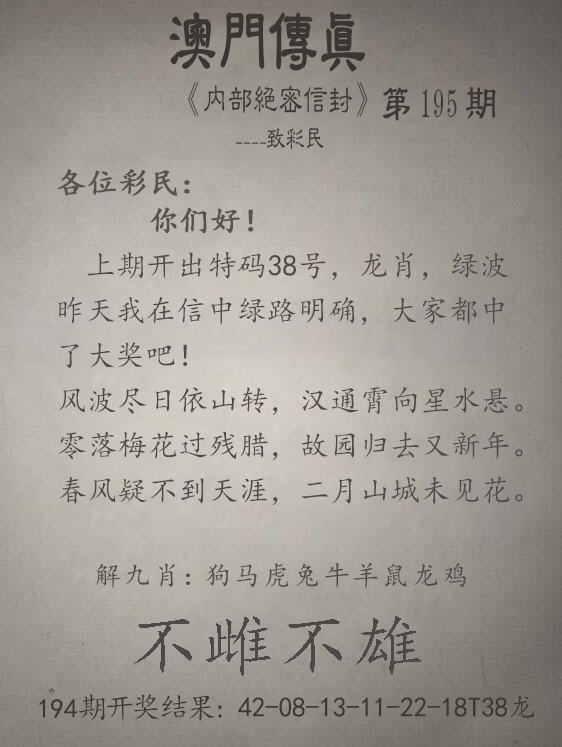 澳門傳真
《内部絕密信封》第195期
----致彩民
各位彩民：
你们好！
上期开出特码38号，龙肖，绿波
昨天我在信中绿路明确，大家都中
了大奖吧！
风波尽日依山转，汉通霄向星水悬。
零落梅花过残腊，故园归去又新年。
春风疑不到天涯，二月山城未见花。
解九肖：狗马虎兔牛羊鼠龙鸡
不雌不雄
194期开奖结果：42-08-13-11-22-18T38龙